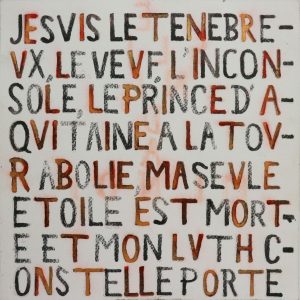 JESVIS LE TENEBRE-
VX, LE VEVF, L'INCON-
SOLE, LE PRINCE D'A-
QVITAINE A LA TOV-
R ABOLIE, MA SEVLE
ETOILE EST MORT-
E ET MON LVTH C-
ONSTELLE PORTE